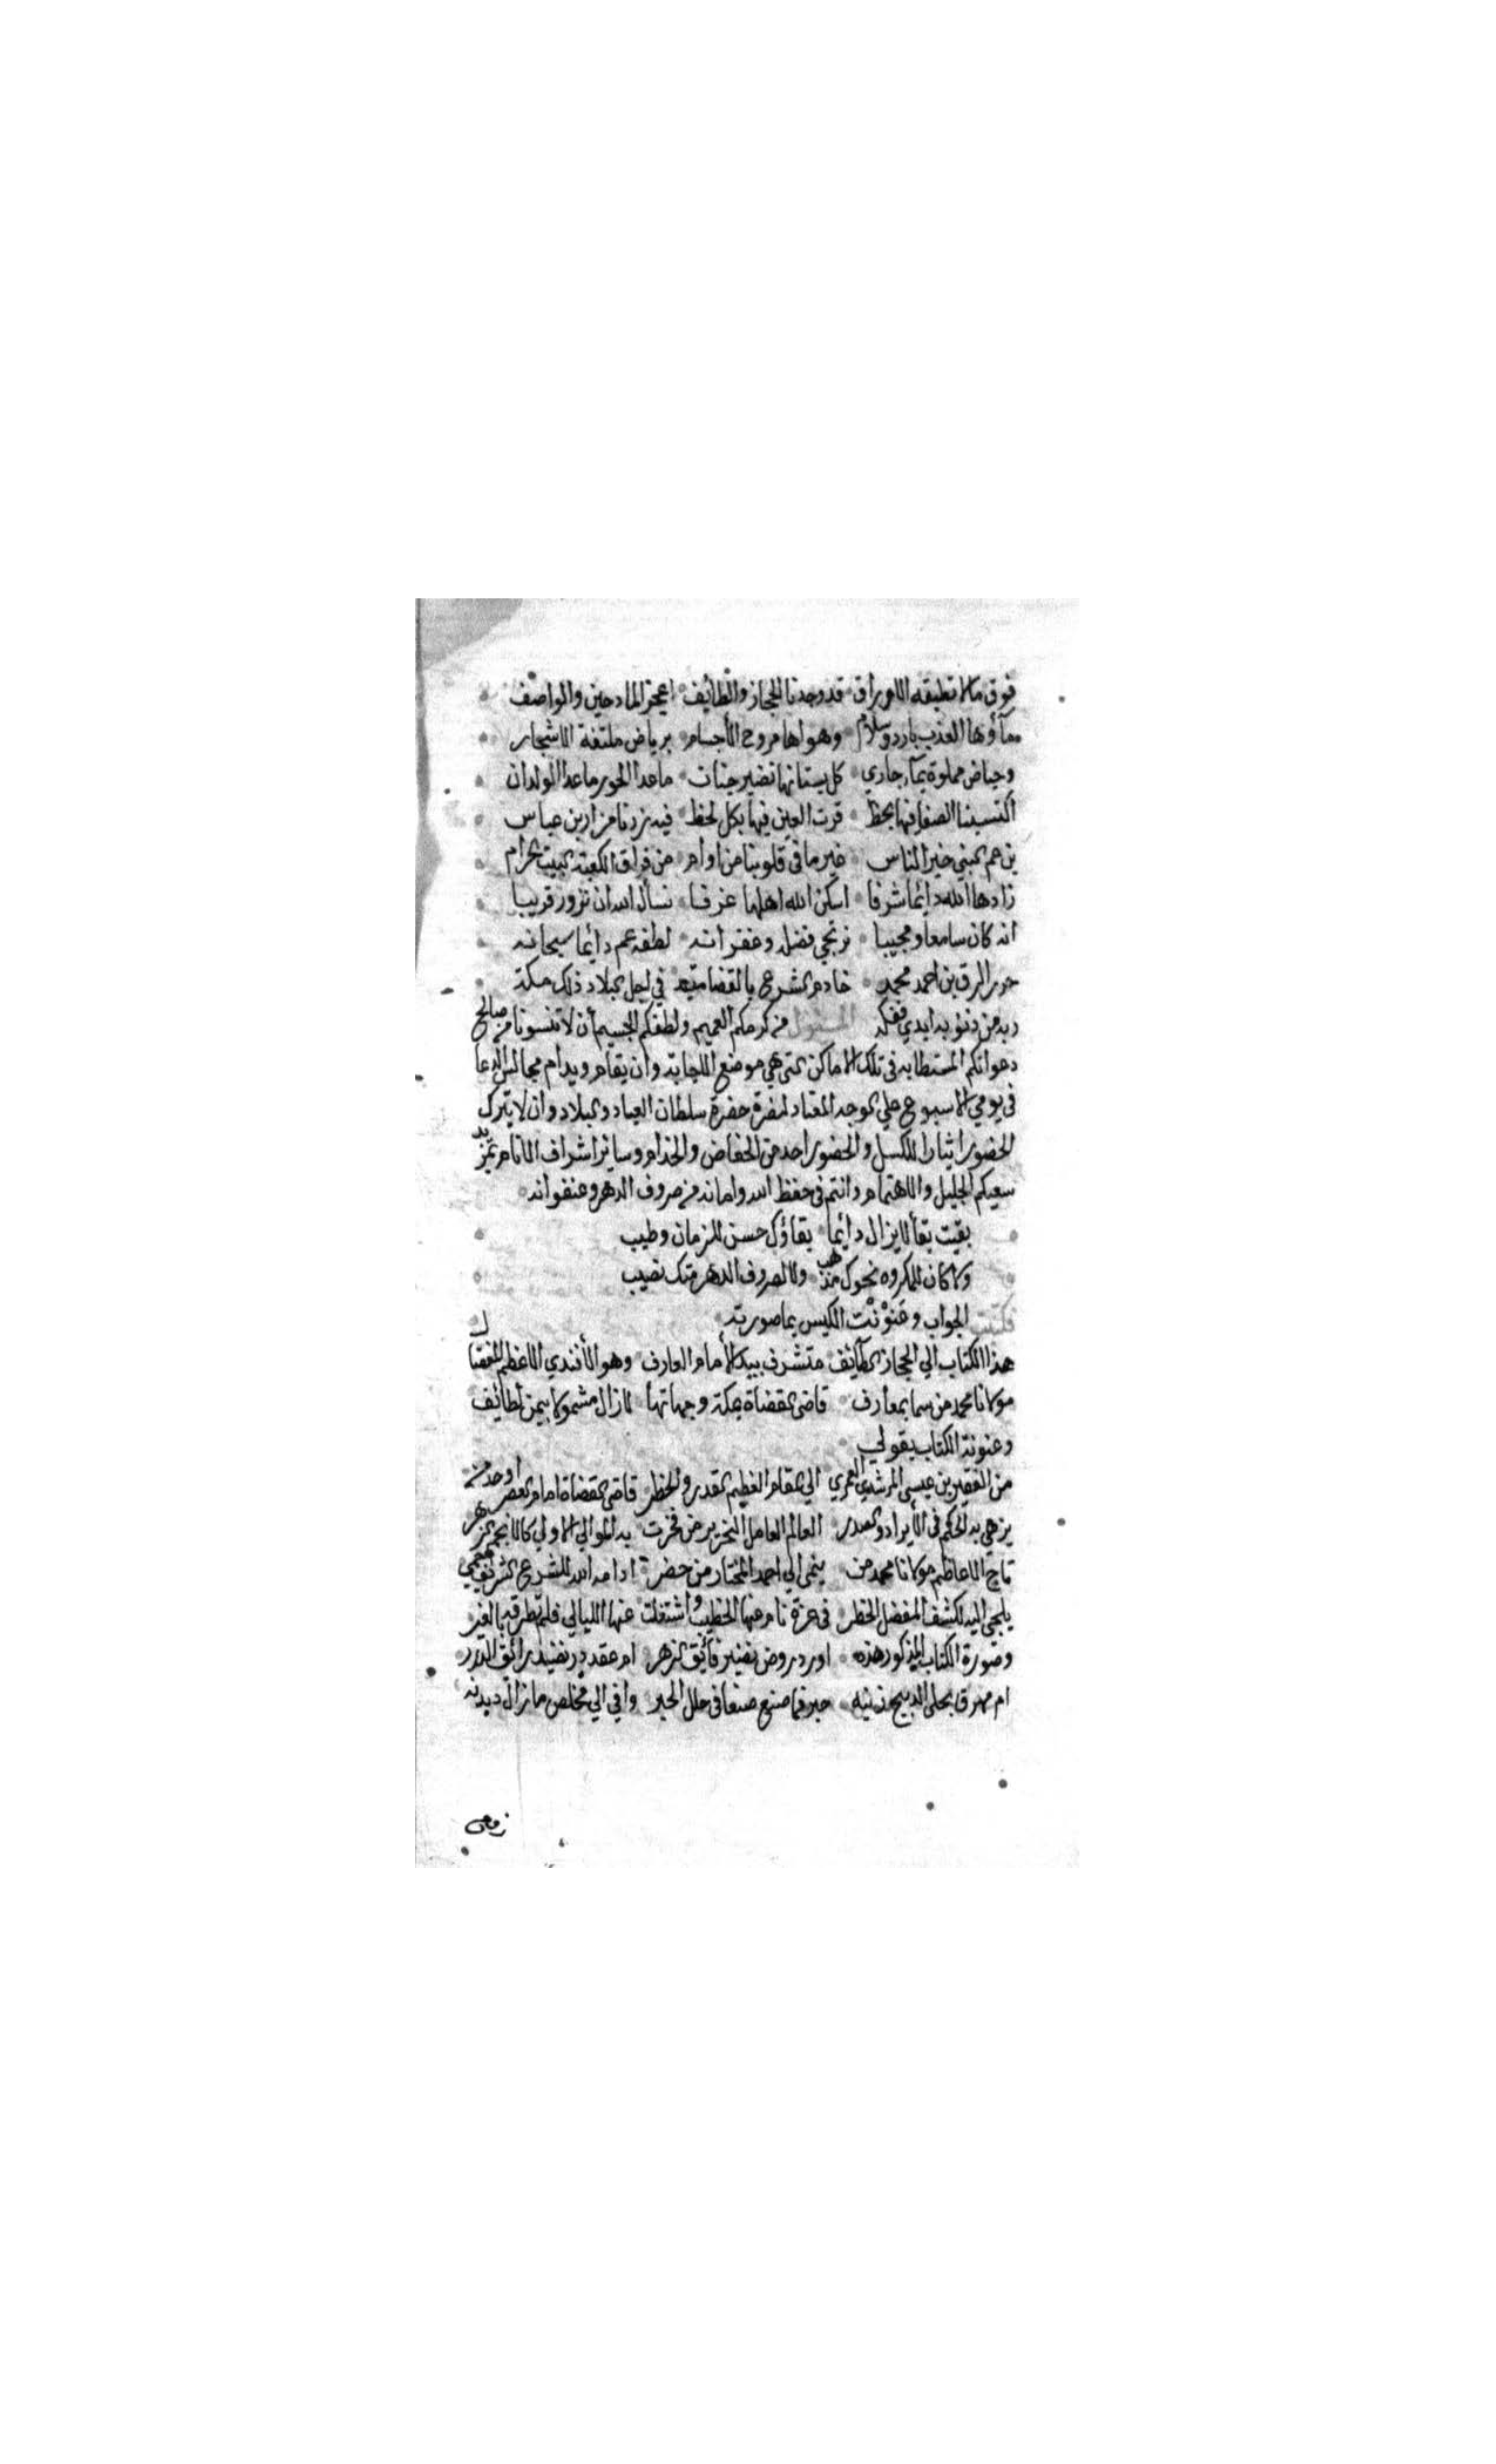 فوق مالا تطيقه الاوراق قد وجدنا الحجاز والطائف اعجز المادحين والواصف
ماؤها العذب بارد وسلام وهواها مروح الأجسام برياض ملتفة الاشجار
وحياض مملوة بماء جاري كل بستانها نضير جنات ما عدا الحور ما عدا الولدان
اكتسبنا الصفا فيها بحظ قرت العين فيها بكل لحظ فيه زرنا مزار بن عباس
بن عم النبي خير الناس غير ما في قلوبنا من اوام من فراق الكعبة البيت الحرام
زادها الله دائما شرفا اسكن الله اهلها غرفا نسأل الله ان نزور قريبا
انه كان سامعا ومجيبا نرتجي فضله وغفرانه لطفه عم دائما سبحانه
حرر الرق بن احمد محمد خادم الشرع بالقضا في اجل البلاد ذلك مكة
ربه من ذنوبه ايدي فكه المسئول من كرمكم العميم ولطفكم الجسيم أن لا تنسونا من صالح
دعواتكم المستطابه في تلك الاماكن التي هي موضع الاجابة وان يقام ويدام مجالس الدعا
في يومي الاسبوع علي الوجه المعتاد لحضرة سلطان العباد والبلاد وان لا يترك
الحضور ايثارا للكسل والحضور احد من الخفاض والخدام وساير اشراف الانام بمزيد
سعيكم الجليل والاهتمام وانتم في حفظ الله وامانه من صروف الدهر وعنفوانه
بقيت بقا لا يزال دائما بقاؤك حسن للزمان وطيب
ولا كان للمكروه نحوك مذهب ولا لصروف الدهر منك نصيب
فكتبت الجواب وعَنْوَنْت الكيس بما صورته
هذا الكتاب الي الحجاز الطائف متشرف بيد الأمام العارف وهو الأفندي الاعظم للقضا
مولانا محمد من سما بمعارف قاضي القضاة بمكة وجهاتها لا زال مشمولا بيمن لطائف
وعنونة الكتاب بقولي
من الفقير بن عيسى المرشدي العمري الي المقام العظيم القدر والخطر قاضي القضاة امام العصر اوحد من
يزهي به الحكم في الأيراد والصدر العالم العامل النحرير من فخرت به الموالي الاولي كالانجم الزهر
تاج الاعاظم مولانا محمد من ينمى الي احمد المختار من حضر ادامه الله للشرع الشريف حمى
يلجي اليه لكشف المعضل الخطر في عزة نام عنها الخطب واشتغلت عنها الليالي فلم تطرقه بالغير
وصورة الكتاب المذكور هذه اورد روض نضير فائق الزهر ام عقد در نضيد رائق الدرر
ام مهرق بحلى الديبج زينه حبر فما صنع صنعا في حلل الحبر وافي الي مخلص ما زال ديدنه